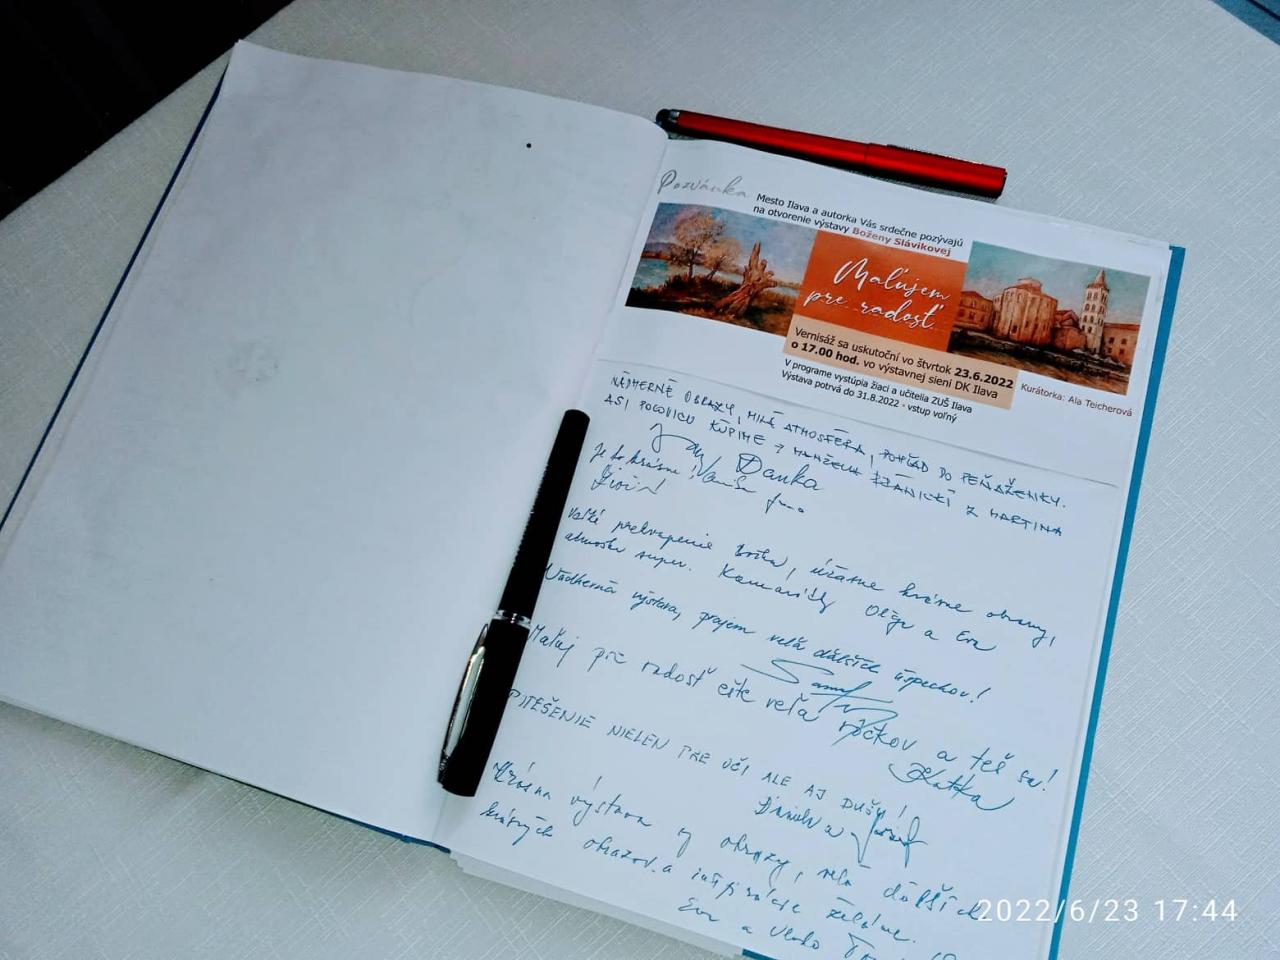 Pozvánka
Mesto Ilava a autorka Vás srdečne pozývajú
na otvorenie výstavy Boženy Slávikovej
Maľujem
pre radosť
Vernisáž sa uskutoční vo štvrtok 23.6.2022
o 17.00 hod. vo výstavnej sieni DK Ilava
V programe vystúpia žiaci a učitelia ZUŠ Ilava
Výstava potrvá do 31.8.2022 • vstup voľný
Kurátorka: Ala Teicherová
NÁDHERNÉ OBRAZY, MILÁ ATMOSFÉRA, POHĽAD DO PEŇAŽENKY.
ASI POLOVICU KÚPIME → MANŽELIA Z MARTINA
Danka
Je to krásne!
Veľké prekvapenie Božka, úžasne krásne obrazy,
atmosféra super. Kamarátky Oľga a Eva
Nádherná výstava, prajem veľa ďalších úspechov!
Maľuj pre radosť ešte veľa rôčkov a teš sa!
Katka
POTEŠENIE NIELEN PRE OČI ALE AJ DUŠU!
a Jozef
Krásna výstava aj obrazy, veľa ďalších
krásnych obrazov a inšpirácie želáme.
Eva a Vlado
2022/6/23 17:44